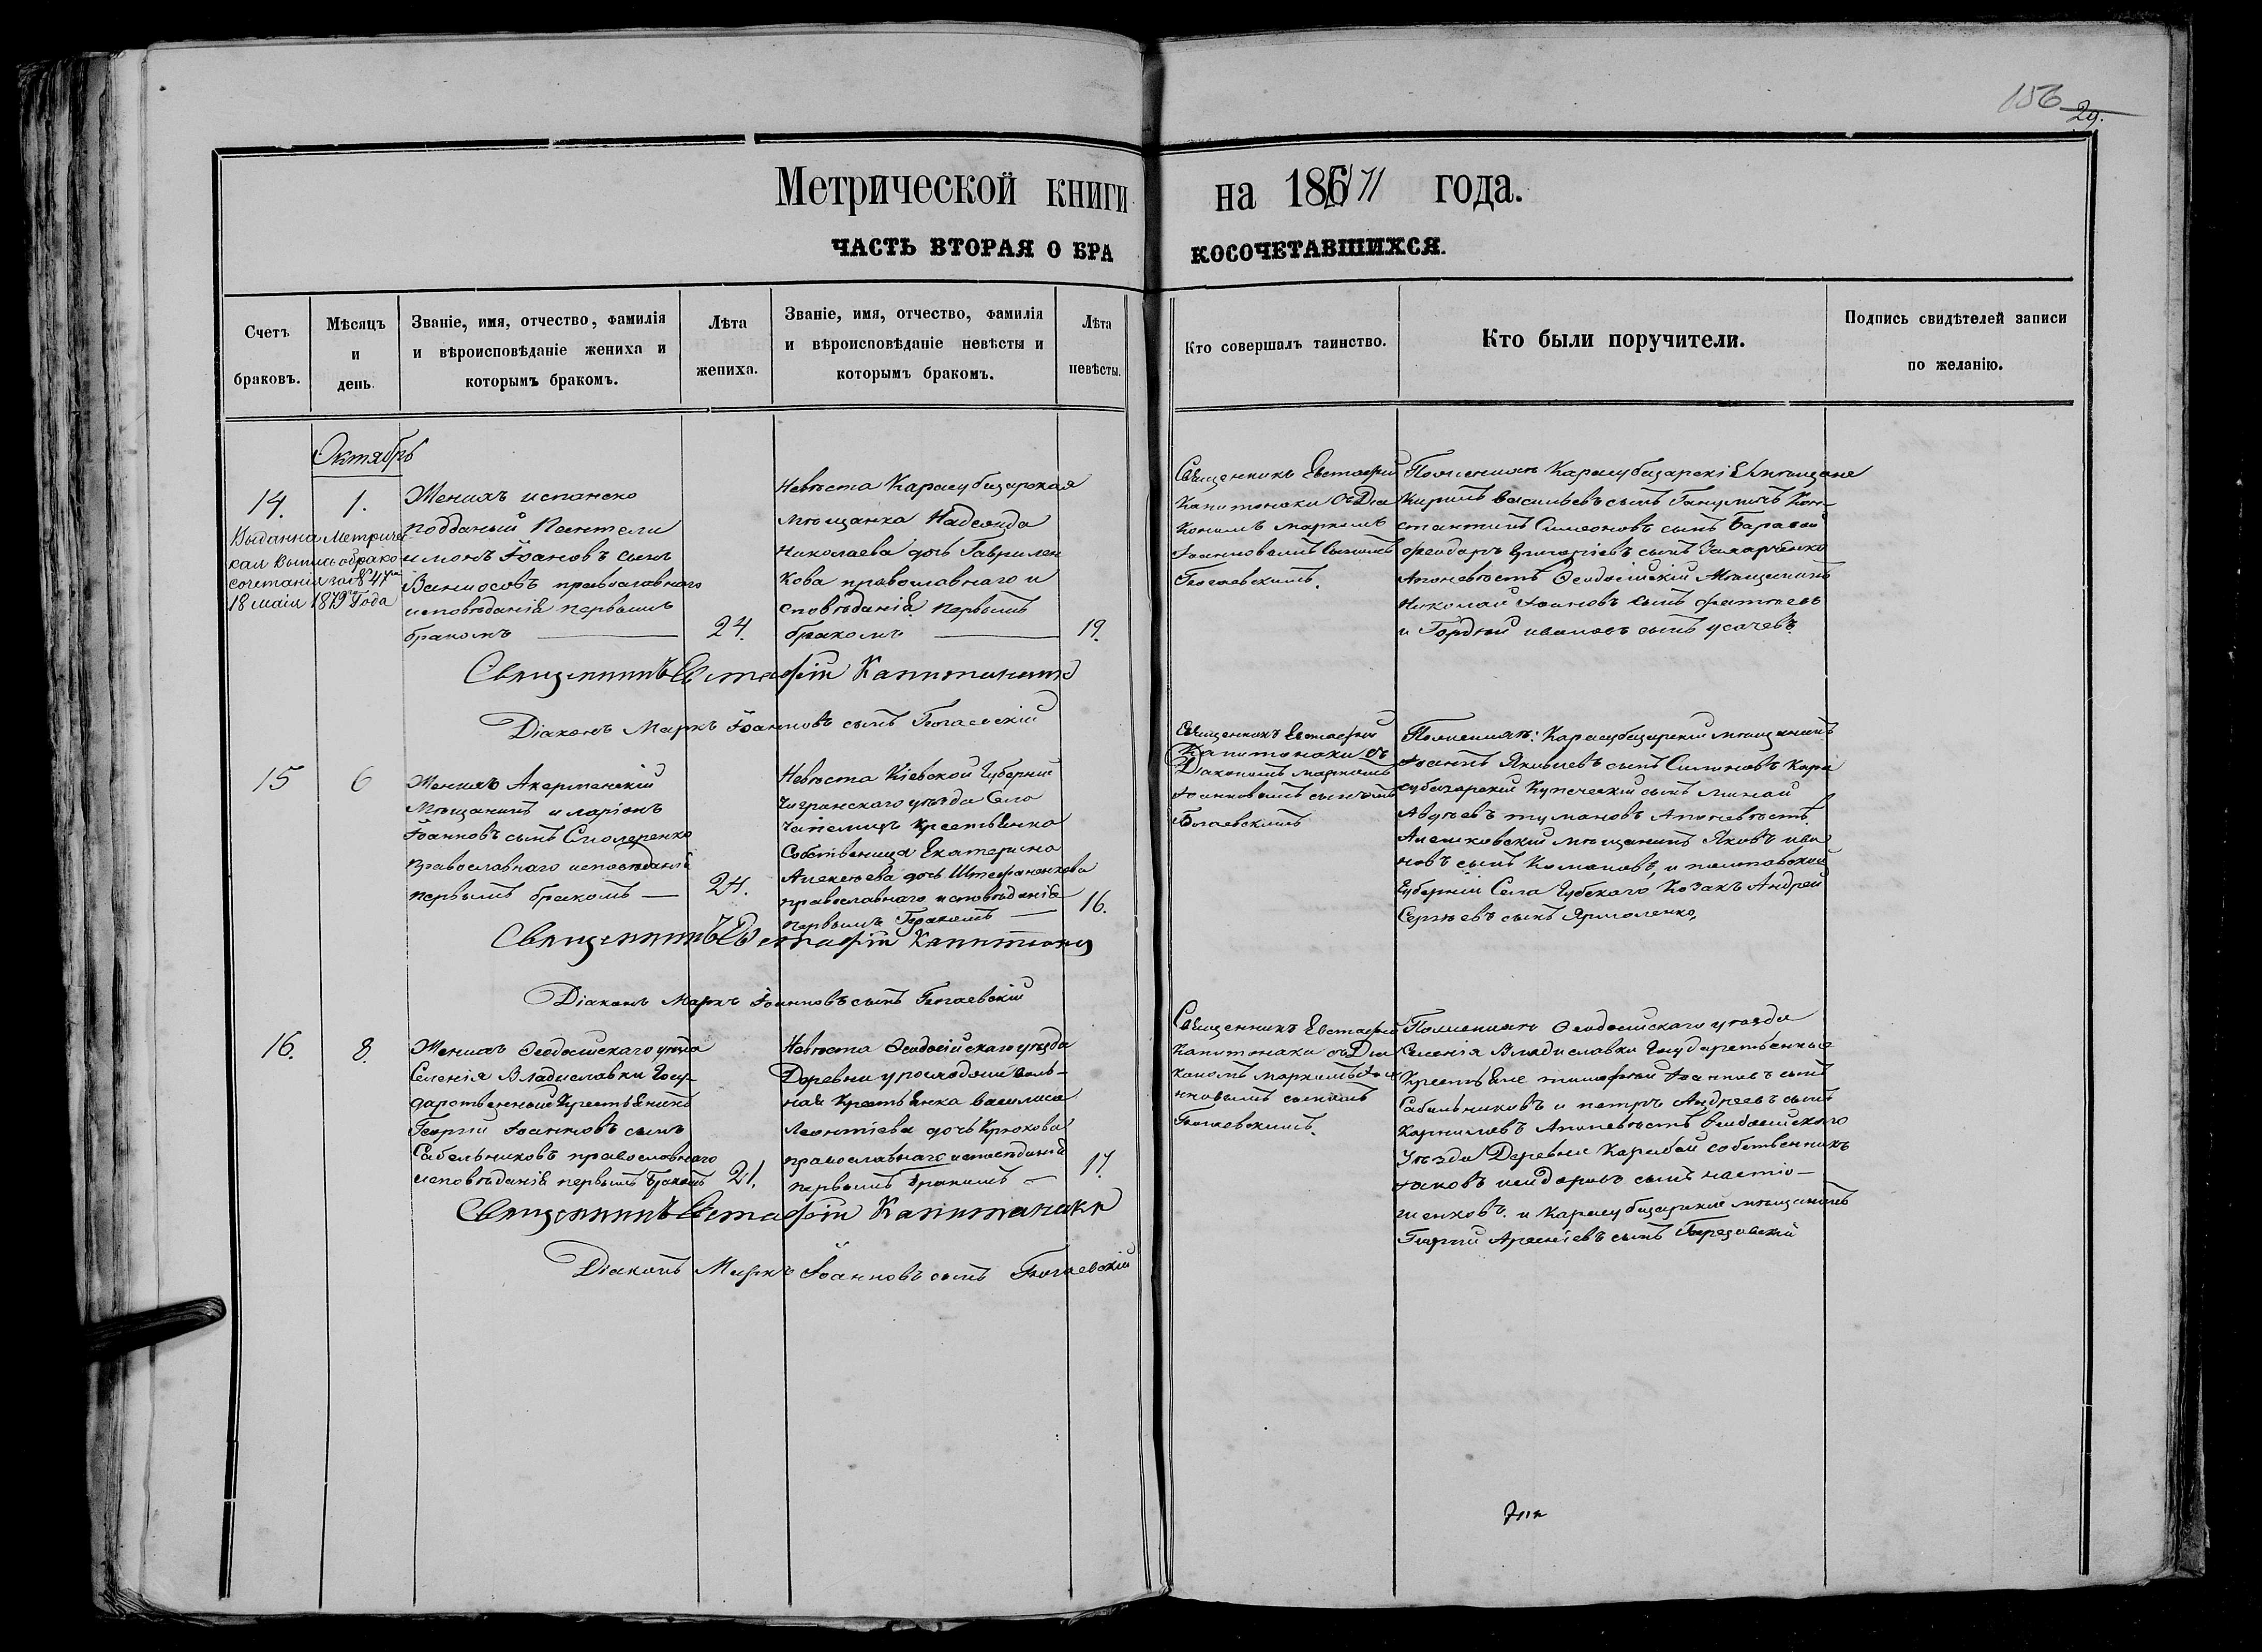 156
29.
Метрической книги на 1871 года.
ЧАСТЬ ВТОРАЯ О БРАКОСОЧЕТАВШИХСЯ.
Счетъ браковъ.
Мѣсяцъ и день.
Званіе, имя, отчество, фамилія
и вѣроисповѣданіе жениха и
которымъ бракомъ.
Лѣта жениха.
Званіе, имя, отчество, фамилія
и вѣроисповѣданіе невѣсты и
которымъ бракомъ.
Лѣта невѣсты.
Кто совершалъ таинство.
Кто были поручители.
Подпись свидѣтелей записи
по желанію.
Октябрь
14.
Выданна Метричес
кая выпись о брако
сочетаніи за № 47
18 маія 1879 года
1.
Женихъ испанско
подданый Пантели
имонъ Іоановъ сынъ
православнаго
исповѣданія первымъ
бракомъ
24.
Невѣста Карасубазарская
мѣщанка Надежда
Николаева дочь Гаврилен
кова православнаго и
сповѣданія первымъ
бракомъ
19.
Священникъ Евстафій
Капитонаки съ Діа
кономъ Маркомъ
Іоанновымъ сыномъ
Богаевскимъ.
По женихѣ Карасубазарскіе мѣщане
Кирилъ Васильевъ сынъ Кон-
стантинъ Симеоновъ сынъ
Феодоръ Григоріевъ сынъ Захарченко
А по невѣстѣ Ѳеодосійскій Мѣщанинъ
Николай Іоановъ сынъ
и Гордѣй Ивановъ сынъ Усачевъ.
Священникъ Евстафій Капитонаки
Діаконъ Маркъ Іоанновъ сынъ Богаевскій
15
6
Женихъ Акерманскій
Мѣщанинъ Иларіонъ
Іоанновъ сынъ
православнаго исповѣданія
первымъ бракомъ
24.
Невѣста Кіевской Губерніи
Чигринскаго уѣзда Села
Крестьянка
Собственица Екатерина
Алексѣева дочь Штефаненкова
православнаго исповѣданія
первымъ бракомъ
16.
Священникъ Евстафій
Капитонаки съ
Діакономъ Маркомъ
Іоанновымъ сыномъ
Богаевскимъ
По женихѣ: Карасубазарскій мѣщанинъ
Іоаннъ Яковлевъ сынъ Кара
субазарскій Купеческій сынъ Минай
Авдѣевъ Тумановъ А по невѣстѣ
Алешковскій мѣщанинъ Яковъ Ива
новъ сынъ и Полтавской
Губерніи Села Губскаго Козакъ Андрей
Сергѣевъ сынъ Ярмоленко
Священникъ Евстафій Капитонаки
Діаконъ Маркъ Іоанновъ сынъ Богаевскій
16.
8.
Женихъ Ѳеодосійскаго уѣзда
Селенія Владиславки Госу-
дарственный Крестьянинъ
Георгій Іоанновъ сынъ
Сабельниковъ православнаго
исповѣданія первымъ бракомъ
21.
Невѣста Ѳеодосійскаго уѣзда
Деревни воль-
ная Крестьянка Василиса
Леонтіева дочь Крюкова
православнаго исповѣданія
первымъ бракомъ
17.
Священникъ Евстафій
Капитонаки съ Діа
кономъ Маркомъ Іоа
нновымъ сыномъ
Богаевскимъ.
По женихѣ Ѳеодосійскаго уѣзда
Селенія Владиславки Государственные
Крестьяне Тимофей Іоанновъ сынъ
Сабельниковъ и Петръ Андреевъ сынъ
Корниловъ А по невѣстѣ Ѳеодосійскаго
Уѣзда Деревни собственникъ
Іаковъ сынъ
и Карасубазарскій мѣщанинъ
Георгій Арсеніевъ сынъ Березовскій
Священникъ Евстафій Капитонаки
Діаконъ Маркъ Іоанновъ сынъ Богаевскій